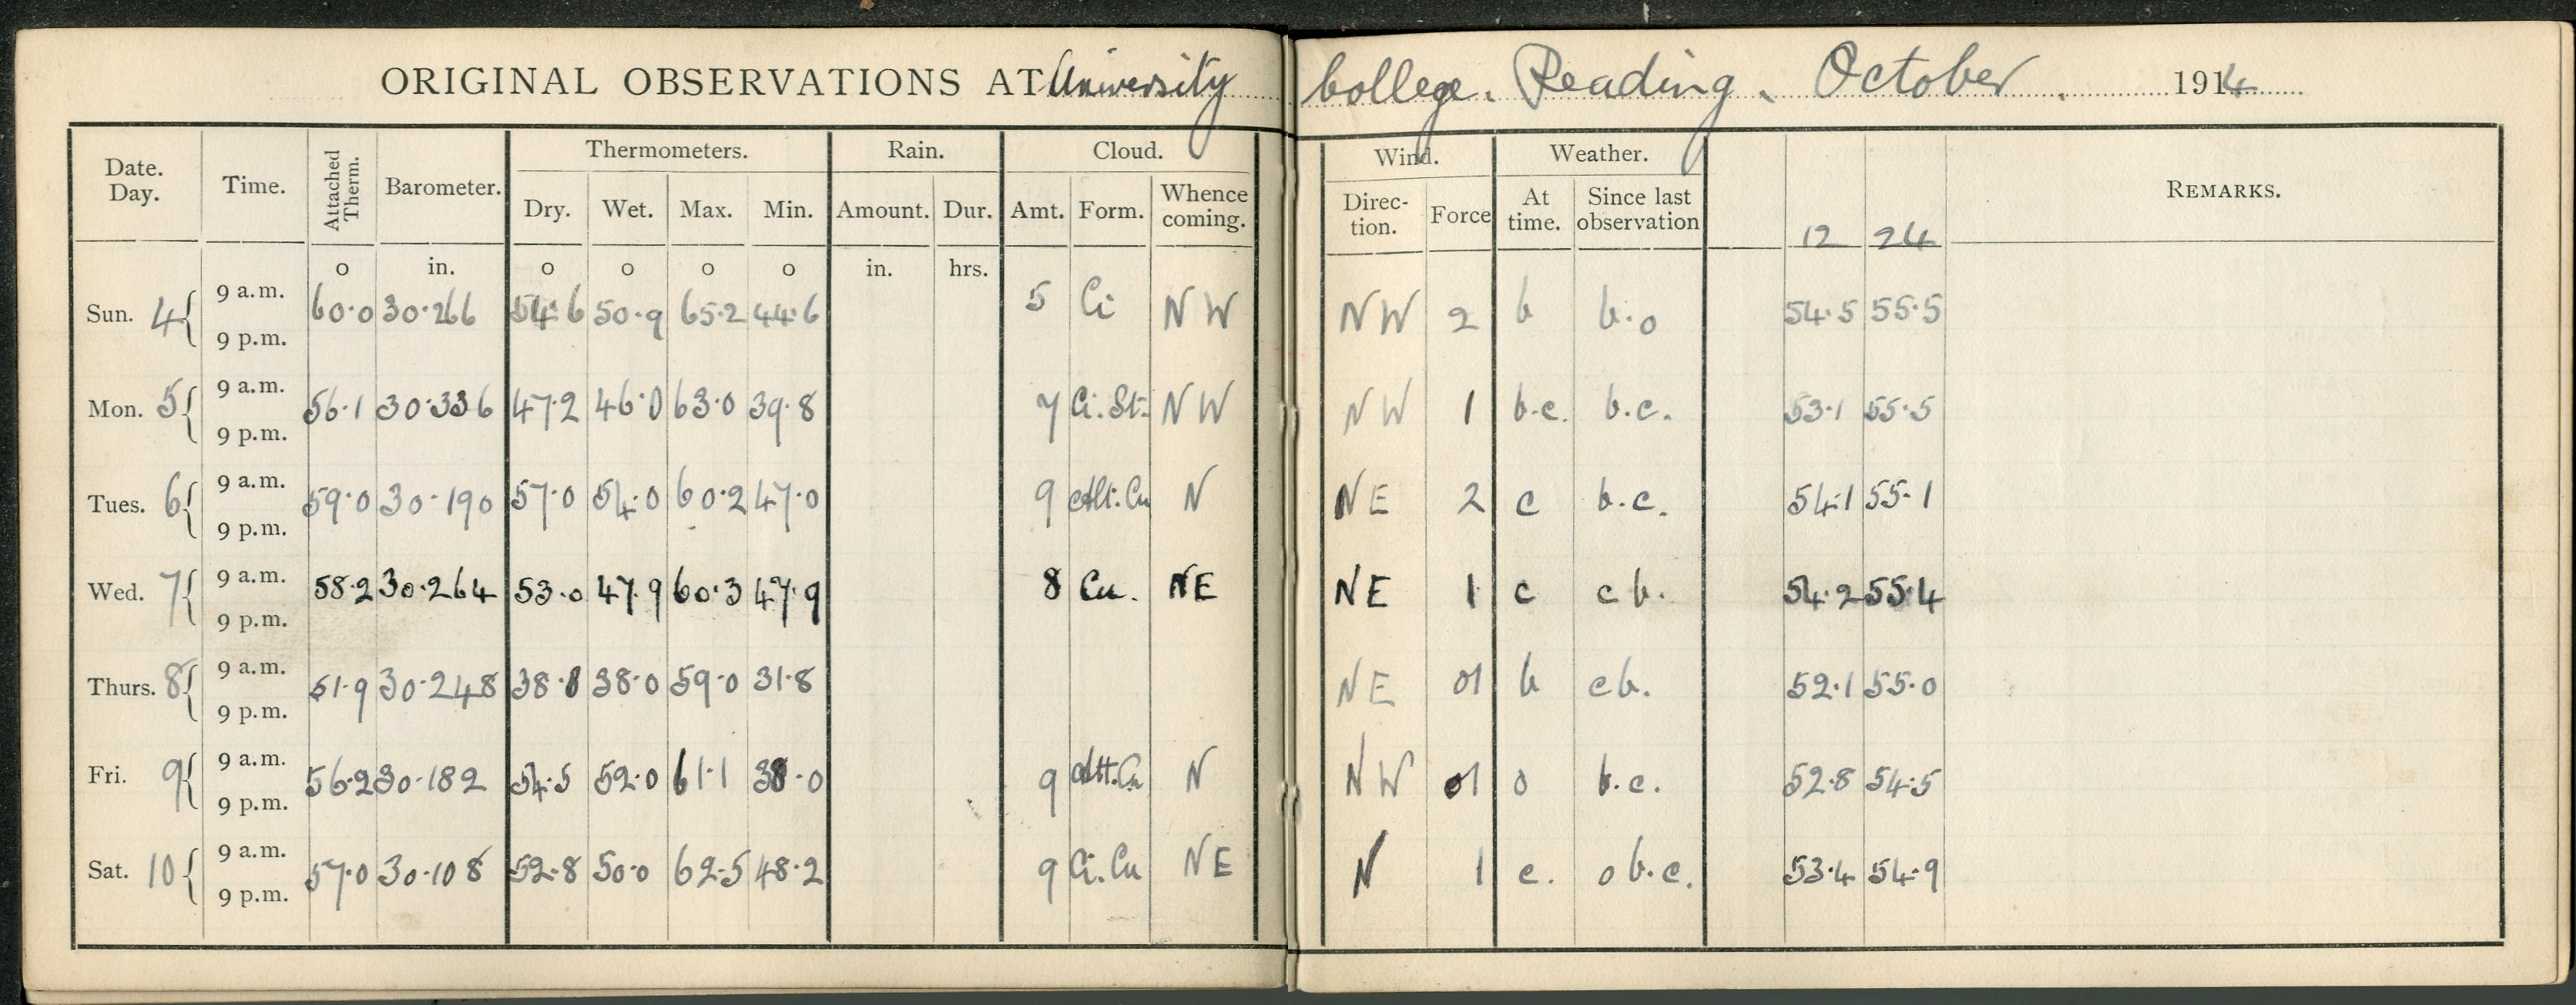 ORIGINAL OBSERVATIONS AT University College. Reading. October. 1914
Date. Day. Time. Attached Therm. Barometer. Thermometers. Rain. Cloud. Wind. Weather. REMARKS.
Dry. Wet. Max. Min. Amount. Dur. Amt. Form. Whence coming. Direc-tion. Force At time. Since last observation 12 24
o in. o o o o in. hrs.
Sun. 4 9 a.m. 60.0 30.266 54.6 50.9 65.2 44.6 5 Ci NW NW 2 b b.o 54.5 55.5
9 p.m.
Mon. 5 9 a.m. 56.1 30.336 47.2 46.0 63.0 39.8 7 Ci.St. NW NW 1 b.c. b.c. 53.1 55.5
9 p.m.
Tues. 6 9 a.m. 59.0 30.190 57.0 54.0 60.2 47.0 9 Alt.Cu N NE 2 c b.c. 54.1 55.1
9 p.m.
Wed. 7 9 a.m. 58.2 30.264 53.0 47.9 60.3 47.9 8 Cu. NE NE 1 c c b. 54.2 55.4
9 p.m.
Thurs. 8 9 a.m. 51.9 30.248 38.8 38.0 59.0 31.8 NE 01 b c b. 52.1 55.0
9 p.m.
Fri. 9 9 a.m. 56.2 30.182 54.5 52.0 61.1 38.0 9 Alt.Cu N NW 01 o b.c. 52.8 54.5
9 p.m.
Sat. 10 9 a.m. 57.0 30.108 52.8 50.0 62.5 48.2 9 Ci.Cu NE N 1 c. o b.c. 53.4 54.9
9 p.m.